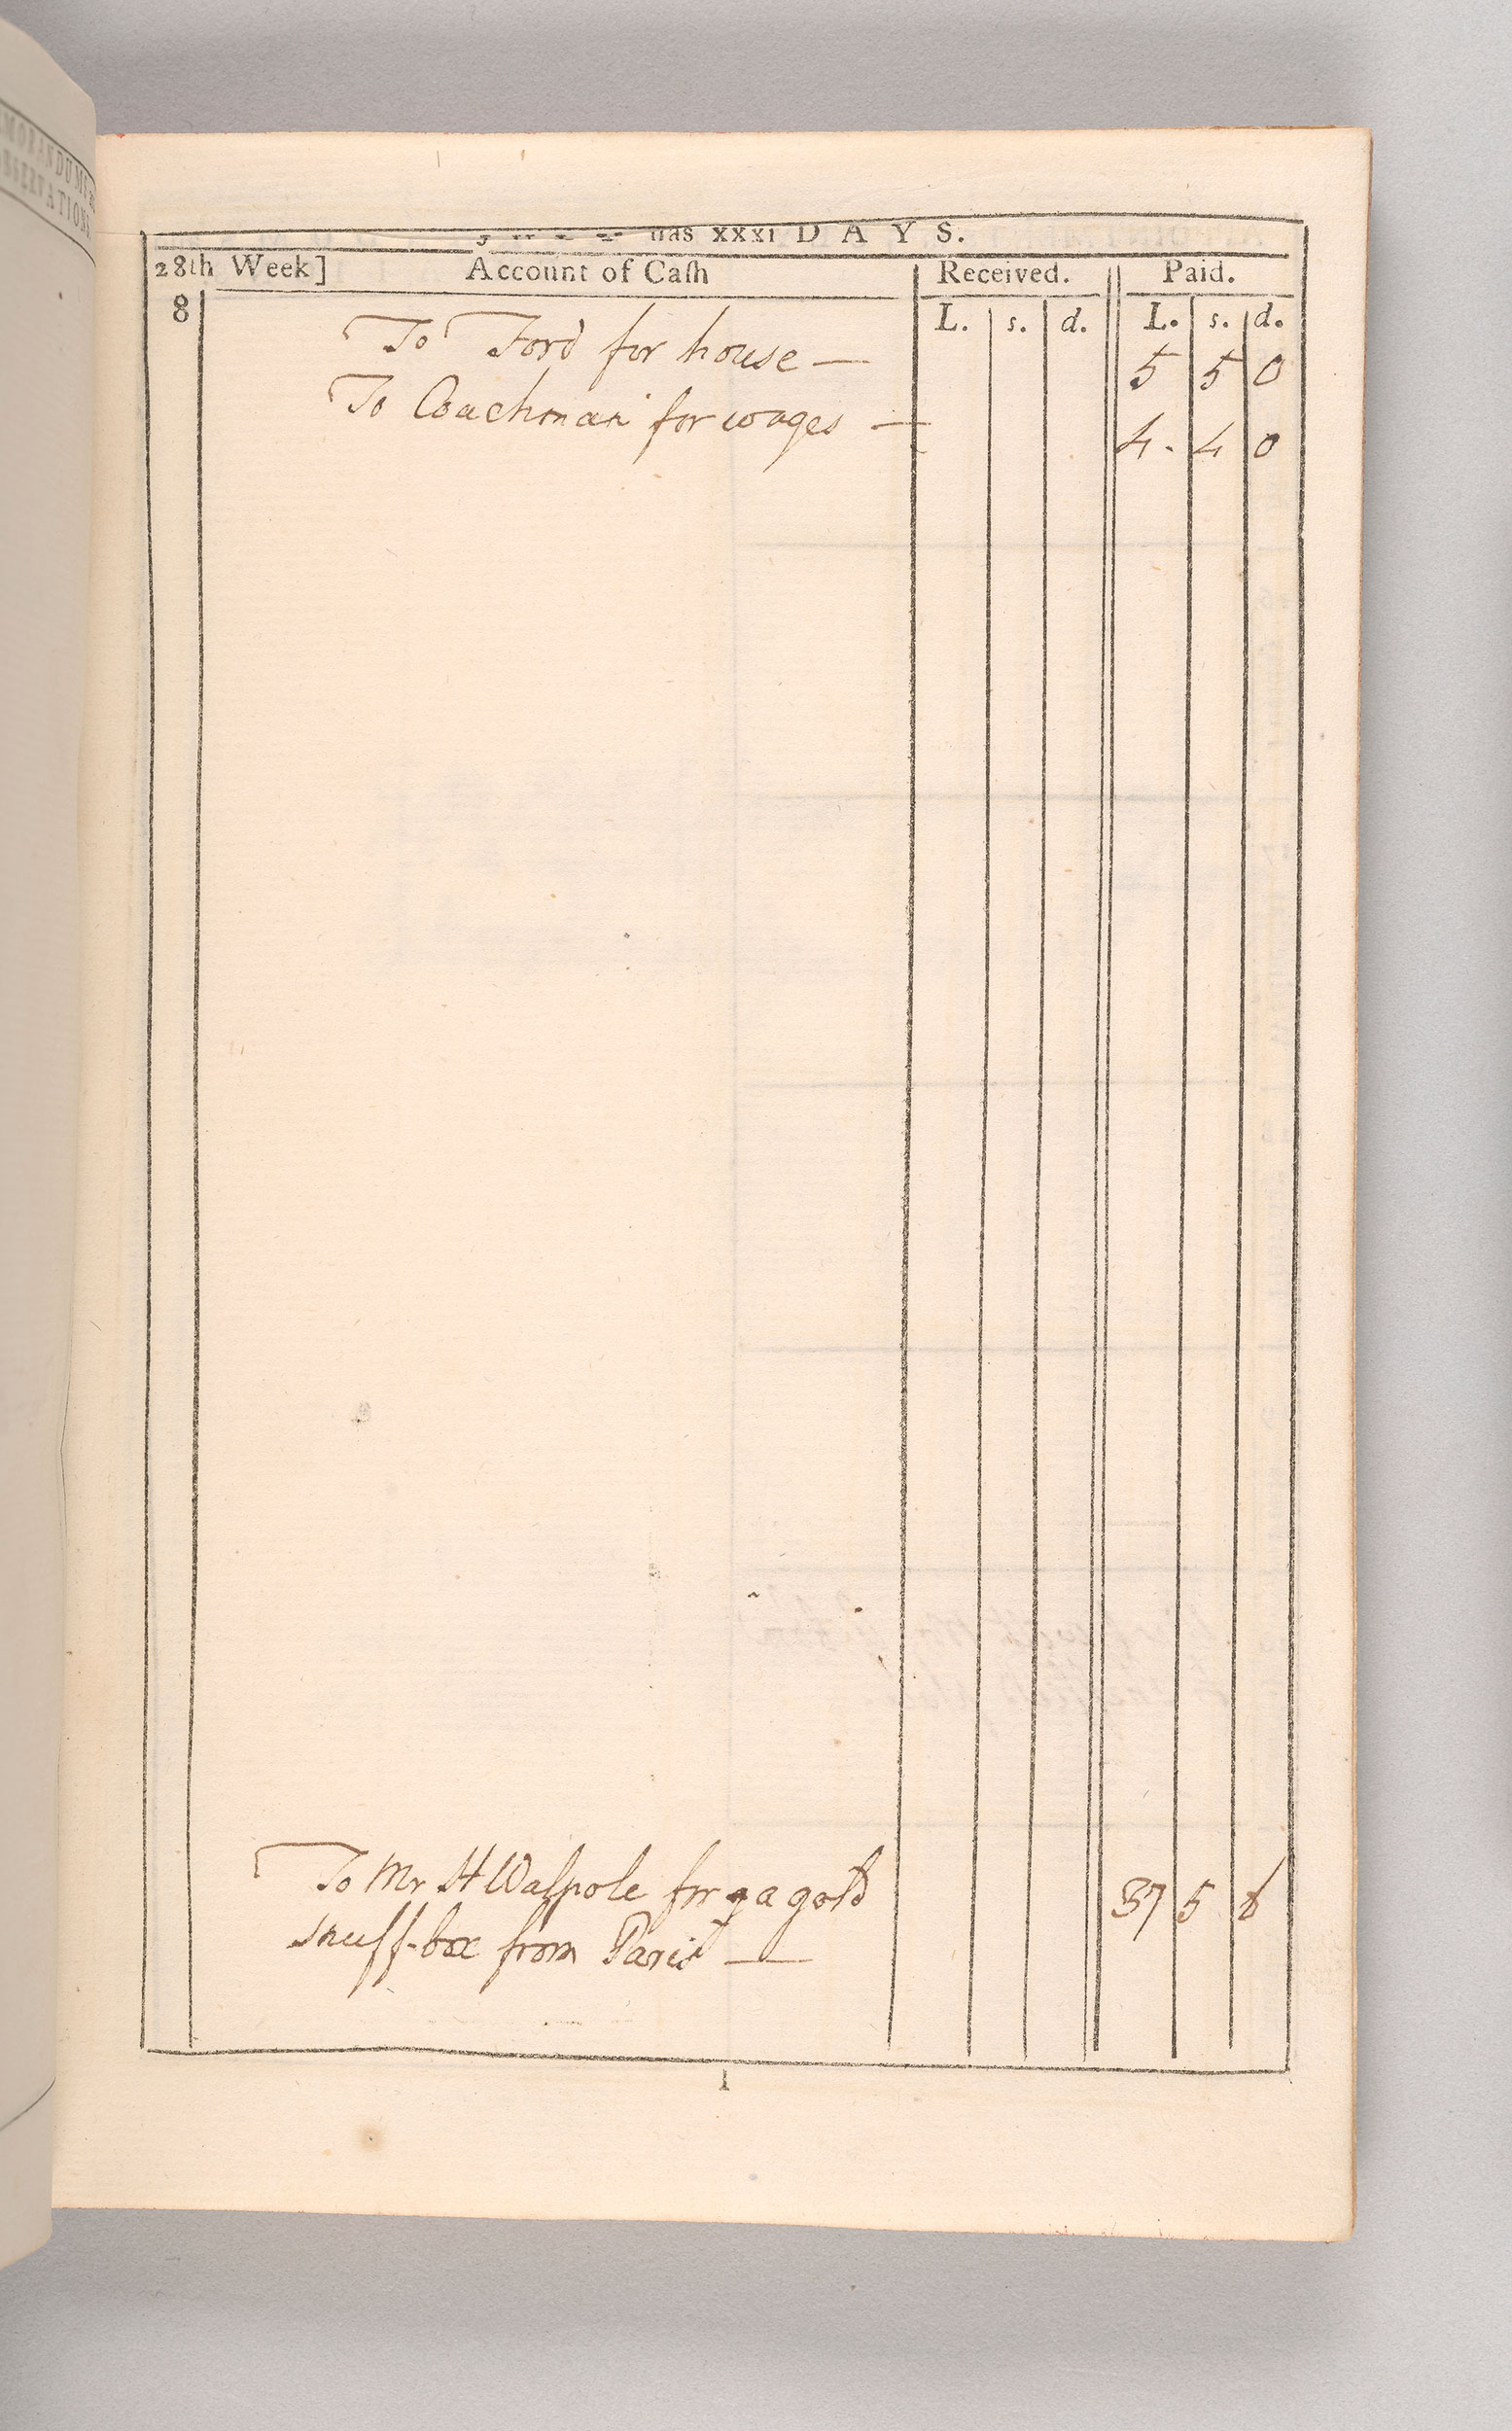 has XXXI DAYS.
28th Week] Account of Caſh Received. Paid.
8 L. s. d. L. s. d.
To Ford for house — 5 5 0
To Coachman for wages — 4 . 4 0
To Mr H Walpole for a gold 37 5
snuff-box from Paris —
I